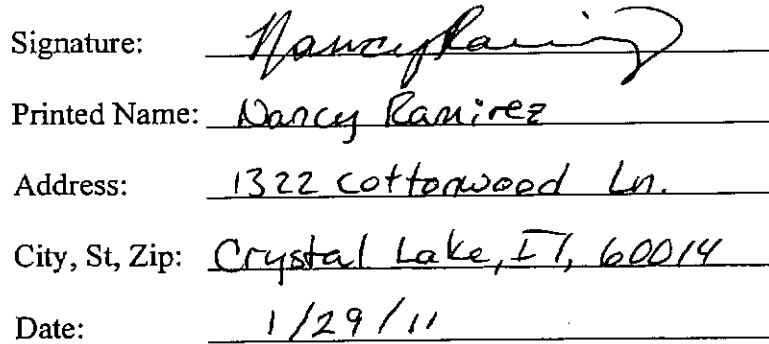 Signature: Nancy Ramirez
Printed Name: Nancy Ramirez
Address: 1322 Cottonwood Ln.
City, St, Zip: Crystal Lake, Il, 60014
Date: 1/29/11